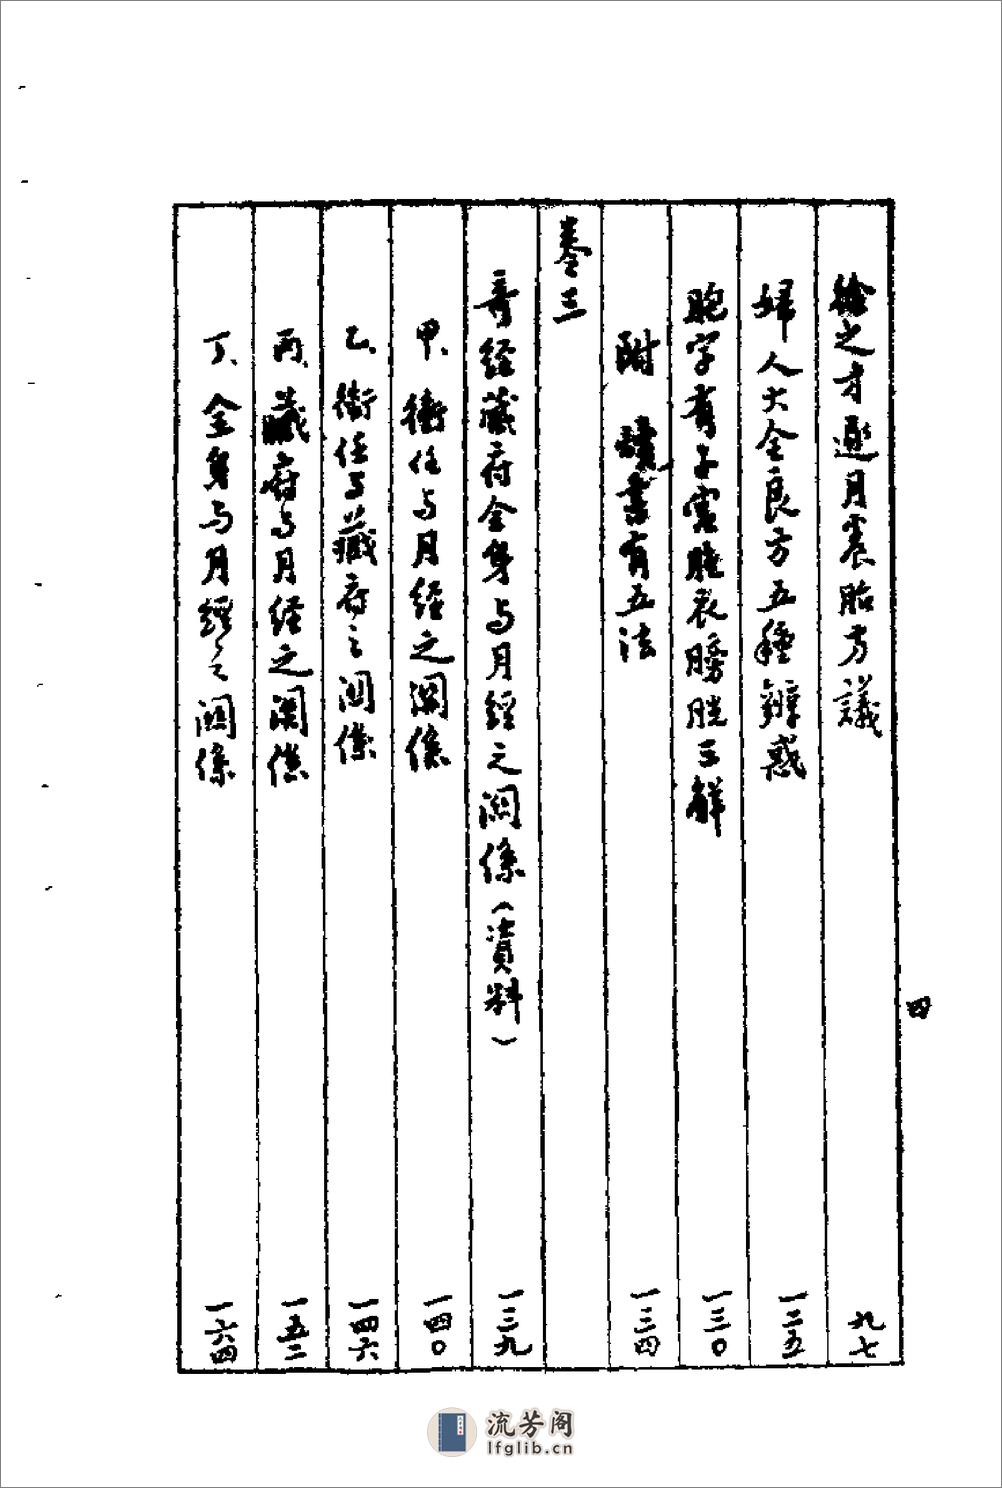 徐之才逐月養胎方議 九七
婦人大全良方五種辨惑 一二五
胞字有子宮胜衣膀胱三解 一三〇
附 讀書有五法 一三四
卷三
奇經藏府全身与月經之関係(資料) 一三九
甲、衝任与月経之関係 一四〇
乙、衝任与藏府之関係 一四六
丙、藏府与月経之関係 一五二
丁、全身与月經之関係 一六四
四
流芳阁
lfglib.cn